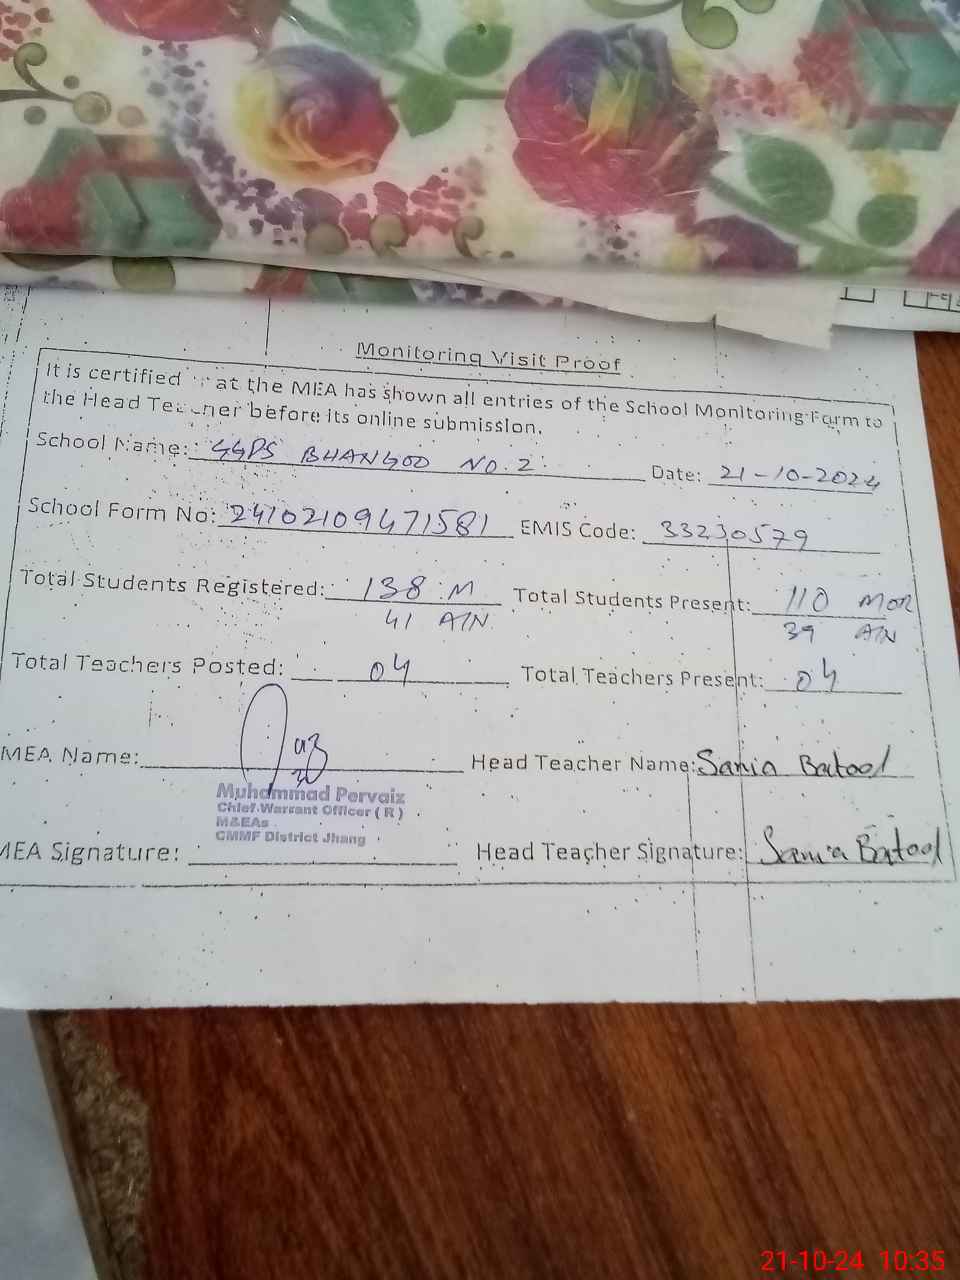 Monitoring Visit Proof
It is certified that the MEA has shown all entries of the School Monitoring Form to
the Head Teacher before its online submission.
School Name: GGPS BHANGOO NO. 2 Date: 21-10-2024
School Form No: 24102109471581 EMIS Code: 33230579
Total Students Registered: 138 M Total Students Present: 110 MOR
41 A/N 39 A/N
Total Teachers Posted: 04 Total Teachers Present: 04
MEA Name: Head Teacher Name: Sania Batool
Muhammad Pervaiz
Chief Warrant Officer ( R )
M&EAs
CMMF District Jhang
MEA Signature: Head Teacher Signature: Sania Batool
21-10-24 10:35